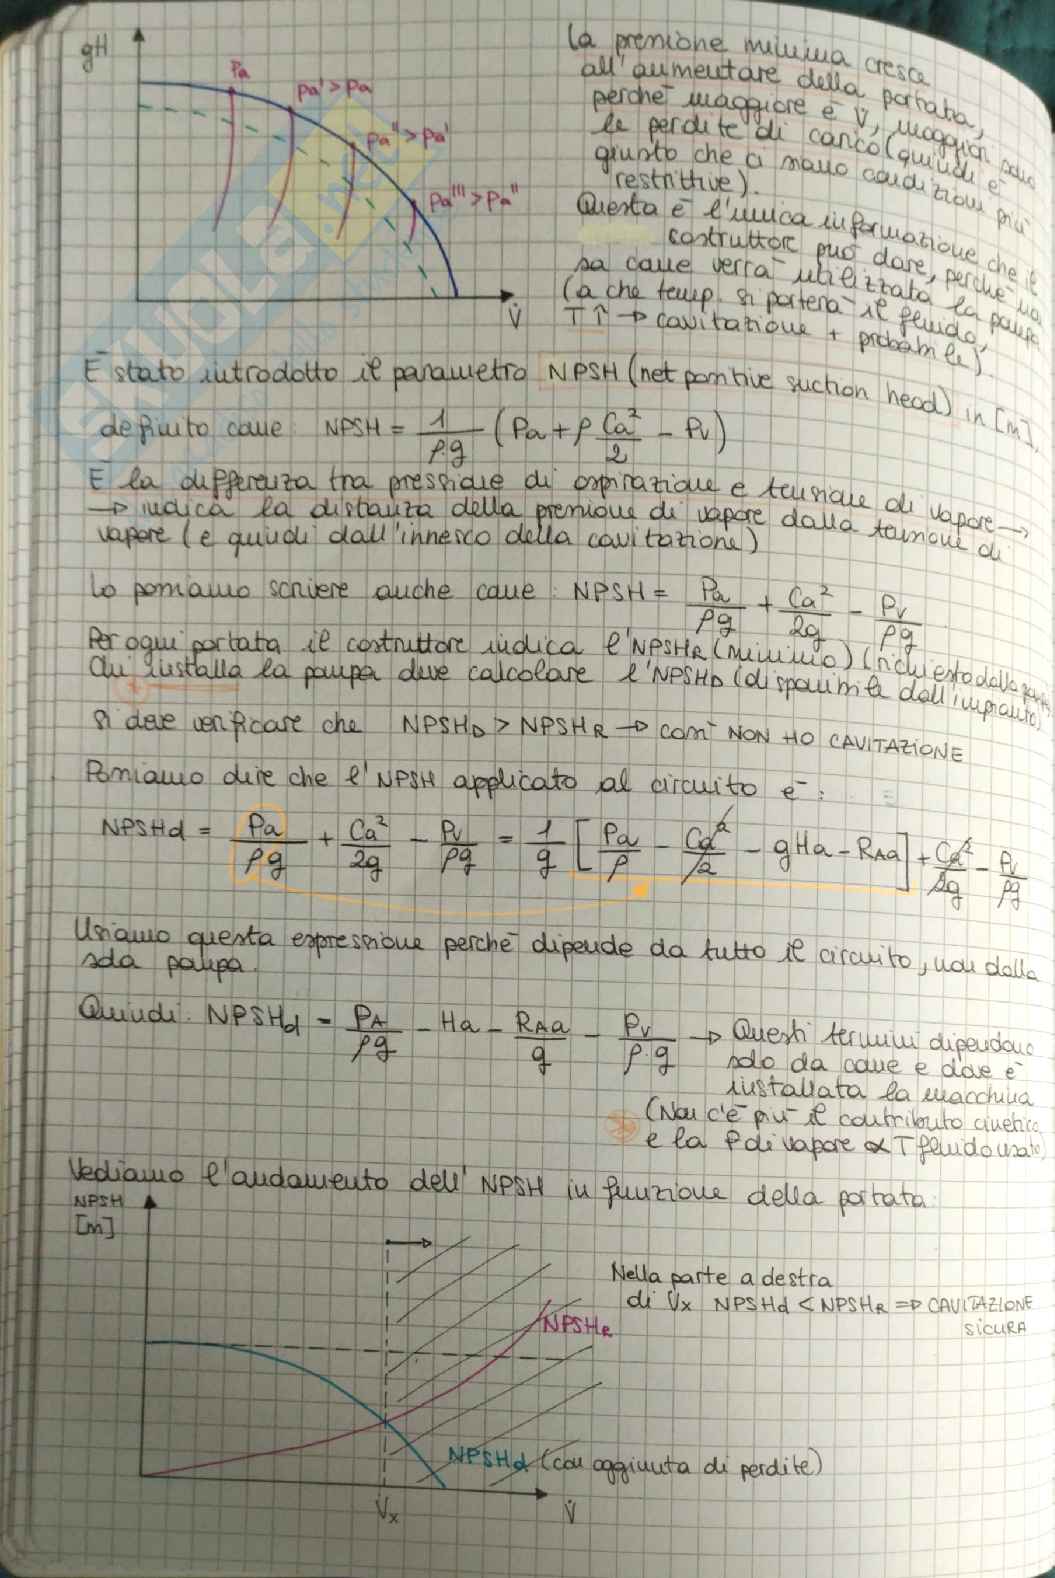 gH
Pa
Pa' > Pa
Pa'' > Pa'
Pa''' > Pa''
V̇
La pressione minima cresce
all'aumentare della portata,
perché maggiore è V̇, maggiori sono
le perdite di carico (quindi è
giusto che ci siano condizioni più
restrittive).
Questa è l'unica informazione che il
costruttore può dare, perché non
sa come verrà utilizzata la pompa
(a che temp. si porterà il fluido,
T↑ → cavitazione + probabile).
È stato introdotto il parametro NPSH (net positive suction head) in [m],
definito come: NPSH = 1/ρ·g (Pa + ρ Ca²/2 - Pv)
È la differenza tra pressione di aspirazione e tensione di vapore →
→ indica la distanza della pressione di vapore dalla tensione di
vapore (e quindi dall'innesco della cavitazione)
Lo possiamo scrivere anche come: NPSH = Pa/ρg + Ca²/2g - Pv/ρg
Per ogni portata il costruttore indica l'NPSHR (minimo) (richiesto dalla pompa)
Chi installa la pompa deve calcolare l'NPSHD (disponibile dall'impianto)
Si deve verificare che NPSHD > NPSHR → così NON HO CAVITAZIONE
Possiamo dire che l'NPSH applicato al circuito è:
NPSHd = Pa/ρg + Ca²/2g - Pv/ρg = 1/g [PA/ρ - Ca²/2 - gHa - RAa] + Ca²/2g - Pv/ρg
Usiamo questa espressione perché dipende da tutto il circuito, non dalla
sola pompa.
Quindi: NPSHd = PA/ρg - Ha - RAa/g - Pv/ρ·g → Questi termini dipendono
solo da come e dove è
installata la macchina
(Non c'è più il contributo cinetico
e la P di vapore ∝ T fluido usato)
Vediamo l'andamento dell'NPSH in funzione della portata:
NPSH
[m]
Nella parte a destra
di Vx NPSHd < NPSHR ⇒ CAVITAZIONE
SICURA
NPSHR
NPSHd (con aggiunta di perdite)
V̇x
V̇
SKUOLA.net